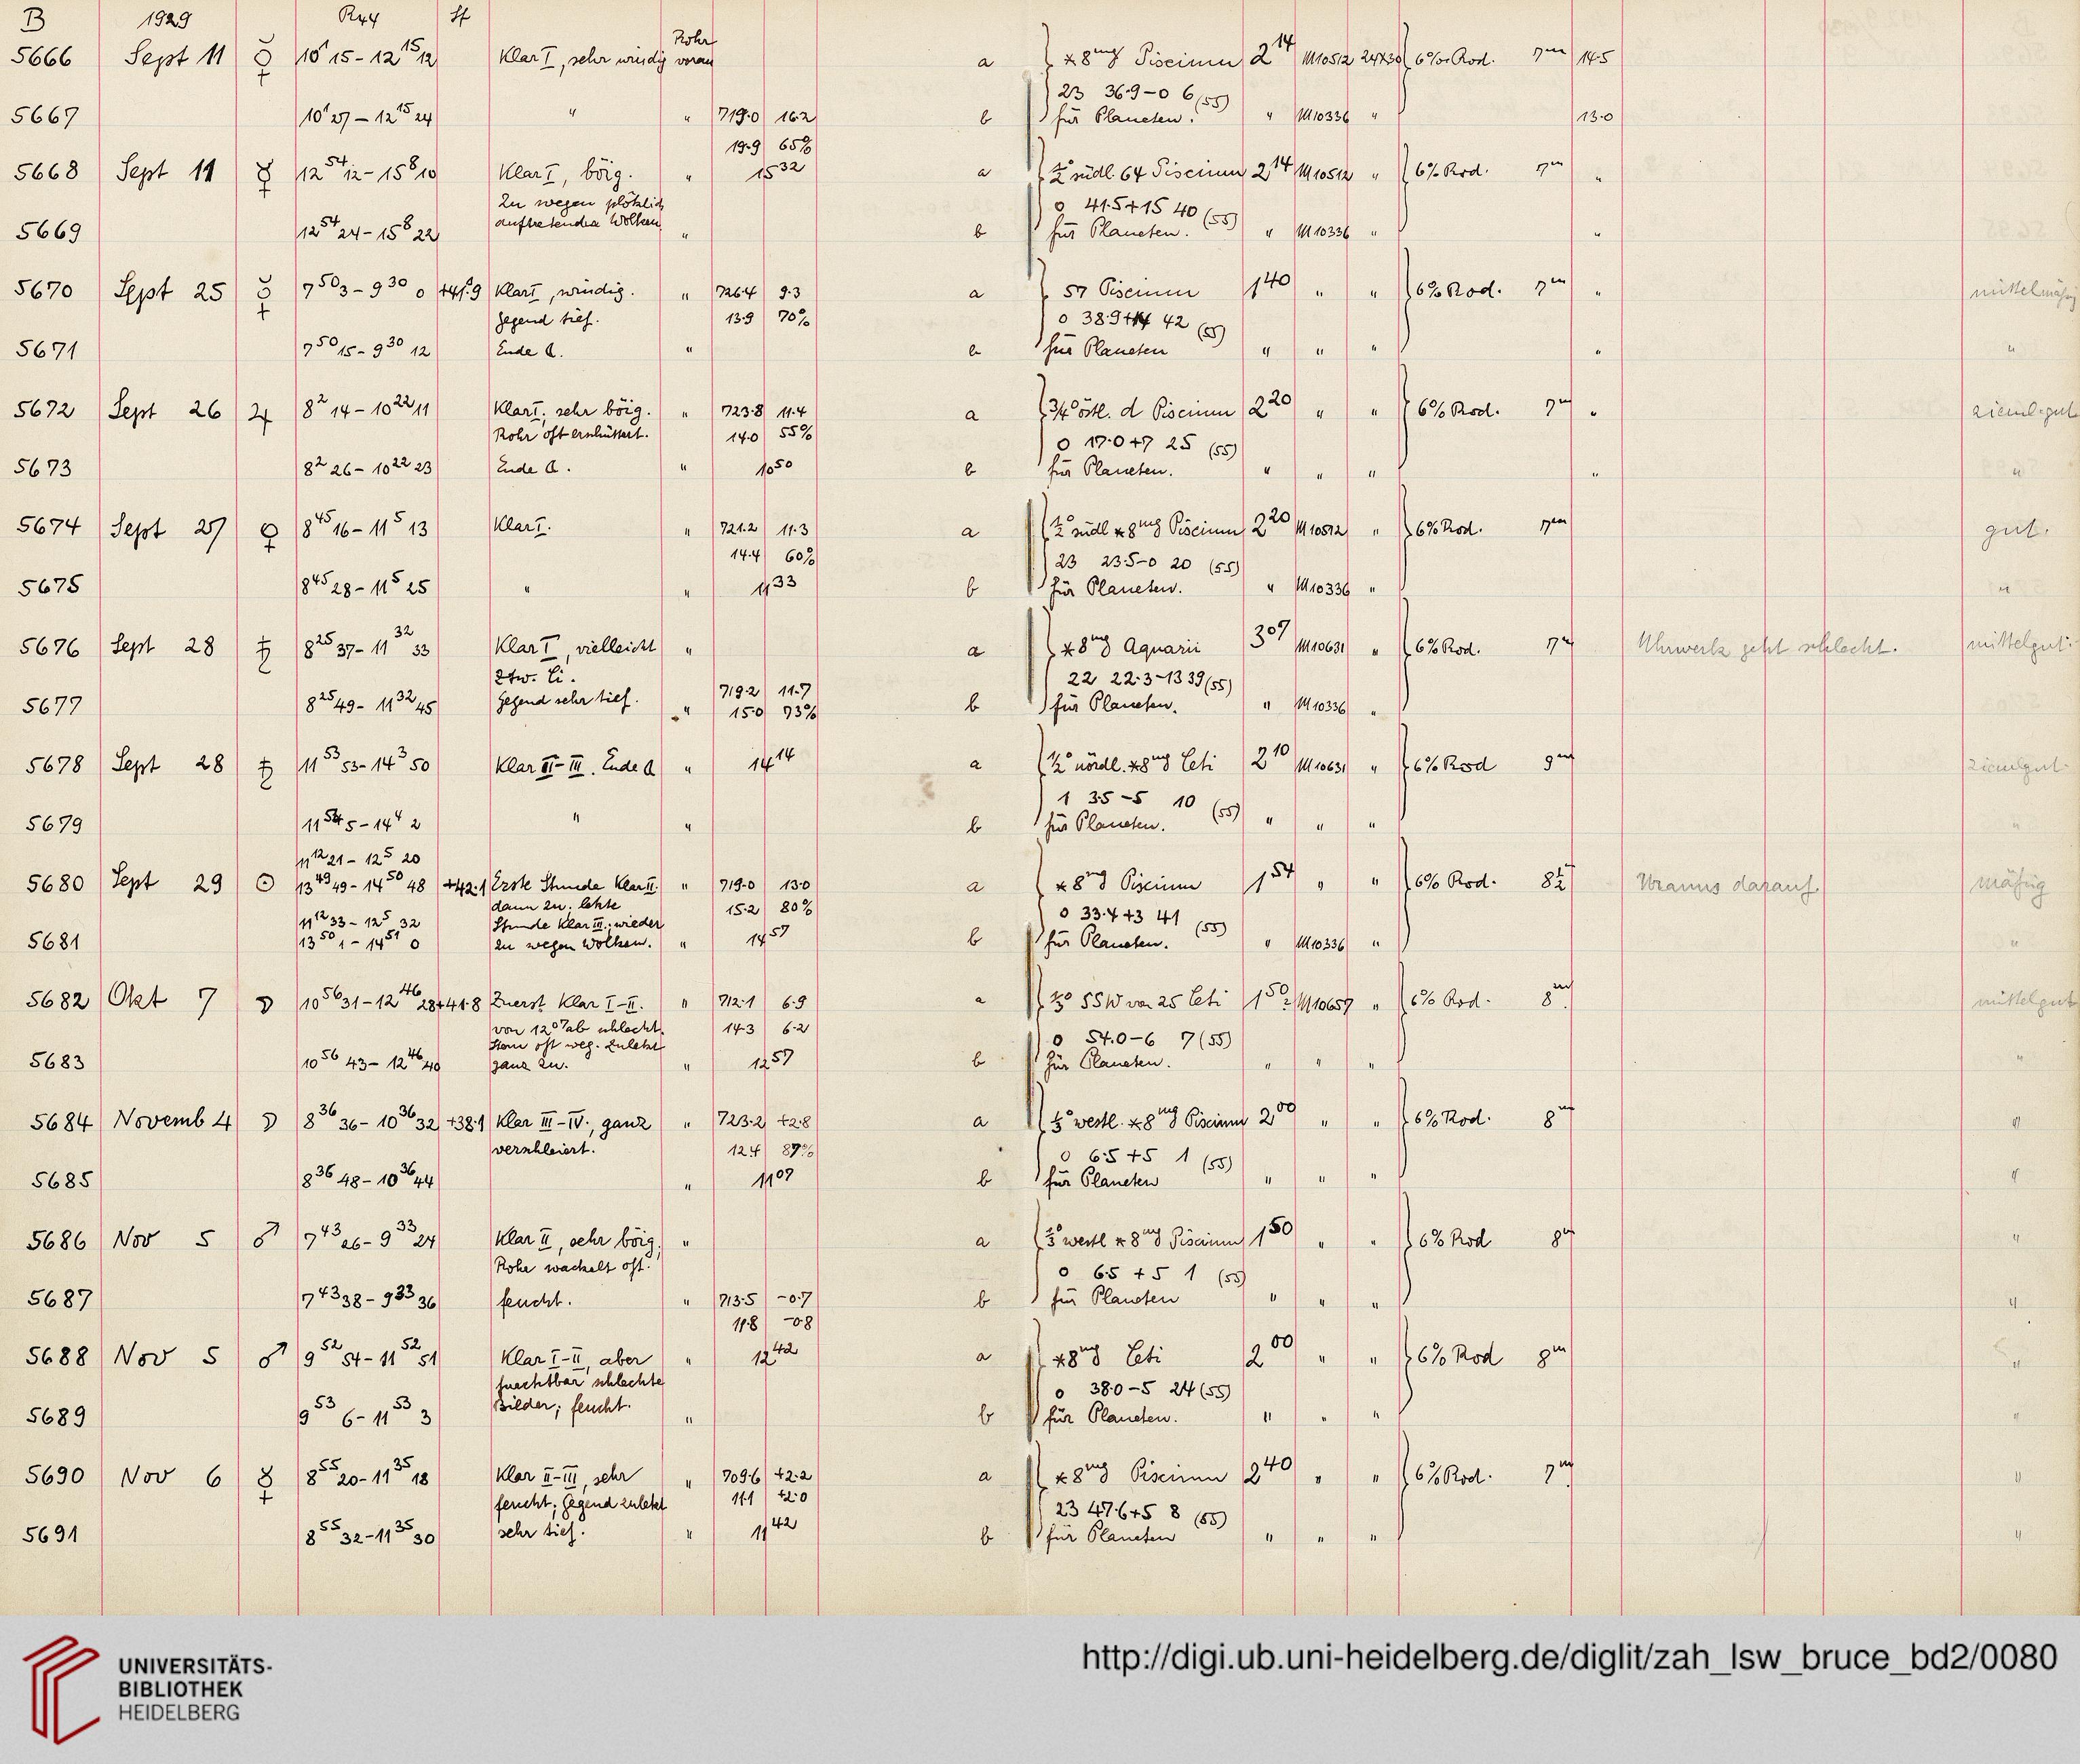 B 1929 R44 St
5666 Sept 11 ☿ 10 15 – 12 15 12 Klar I, sehr windig Rohr voran a *8mg Piscium 2 14 M10512 24x30 6% Rod. 7m 14.5
23 36.9 – 0 6 (55)
5667 10 27 – 12 15 24 " " 719.0 16.2 b für Planeten. " M10336 " 13.0
19.9 65%
5668 Sept 11 ☿ 12 54 12 – 15 8 10 Klar I, böig. " 15 32 a ½° südl. 64 Piscium 2 14 M10512 " 6% Rod. 7m "
Zu wegen plötzlich 0 41.5 + 15 40 (55)
5669 12 54 24 – 15 8 22 auftretender Wolken " b für Planeten. " M10336 " "
5670 Sept 25 ☿ 7 50 3 – 9 30 0 +41.9 Klar I, windig. " 726.4 9.3 a 57 Piscium 1 40 " " 6% Rod. 7m " mittelmäßig
Gegend tief. 13.9 70% 0 38.9 + 14 42 (55)
5671 7 50 15 – 9 30 12 Ende ☾. " b für Planeten " " " " "
5672 Sept 26 ♃ 8 2 14 – 10 22 11 Klar I; sehr böig. " 723.8 11.4 a ¾° östl. d Piscium 2 20 " " 6% Rod. 7m " zieml. gut
Rohr oft erschüttert. 14.0 55% 0 17.0 + 7 25 (55)
5673 8 2 26 – 10 22 23 Ende ☾. " 10 50 b für Planeten. " " " " "
5674 Sept 27 ♀ 8 45 16 – 11 5 13 Klar I. " 721.2 11.3 a ½° südl *8mg Piscium 2 20 M10512 " 6% Rod. 7m gut.
14.4 60% 23 23.5 – 0 20 (55)
5675 8 45 28 – 11 5 25 " " 11 33 b für Planeten. " M10336 " "
5676 Sept 28 ♄ 8 25 37 – 11 32 33 Klar I, vielleicht " a *8mg Aquarii 3 07 M10631 " 6% Rod. 7m Uhrwerk geht schlecht. mittelgut.
etw. Ci. 22 22.3 – 13 39 (55)
5677 8 25 49 – 11 32 45 Gegend sehr tief. " 719.2 11.7 b für Planeten. " M10336 "
15.0 73%
5678 Sept 28 ♄ 11 53 53 – 14 3 50 Klar II–III. Ende ☾ " 14 14 a ½° nördl. *8mg Ceti 2 10 M10631 " 6% Rod 9m zieml gut.
1 3.5 – 5 10 (55)
5679 11 54 5 – 14 4 2 " " b für Planeten. " " " "
11 12 21 – 12 5 20
5680 Sept 29 ☉ 13 49 49 – 14 50 48 +42.1 Erste Stunde Klar II. " 719.0 13.0 a *8mg Piscium 1 54 " " 6% Rod. 8½ Uranus darauf. mäßig
dann zu; letzte 15.2 80% 0 33.4 + 3 41 (55)
11 12 33 – 12 5 32 Stunde Klar III; wieder
5681 13 50 1 – 14 51 0 zu wegen Wolken. " 14 57 b für Planeten. " M10336 " "
5682 Okt 7 ☽ 10 56 31 – 12 46 28 +41.8 Zuerst Klar I–II. " 712.1 6.9 a ⅓° SSW von 25 Ceti 1 50 M10657 " 6% Rod. 8m. mittelgut
von 12 07 ab schlecht. 14.3 6.2
Stern oft weg. Zuletzt 0 54.0 – 6 7 (55)
5683 10 56 43 – 12 46 40 ganz zu. " 12 57 b für Planeten. " " " "
5684 Novemb 4 ☽ 8 36 36 – 10 36 32 +38.1 Klar III–IV., ganz " 723.2 +2.8 a ⅓° westl. *8mg Piscium 2 00 " " 6% Rod. 8m "
verschleiert. 12.4 87% 0 6.5 + 5 1 (55)
5685 8 36 48 – 10 36 44 " 11 07 b für Planeten " " " "
5686 Nov 5 ♂ 7 43 26 – 9 33 24 Klar II, sehr böig; " a ⅓° westl *8mg Piscium 1 50 " " 6% Rod 8m "
Rohr wackelt oft. 0 6.5 + 5 1 (55)
5687 7 43 38 – 9 33 36 feucht. " 713.5 –0.7 b für Planeten " " " "
11.8 –0.8
5688 Nov 5 ♂ 9 52 54 – 11 52 51 Klar I–II, aber " 12 42 a *8mg Ceti 2 00 " " 6% Rod 8m "
furchtbar schlechte 0 38.0 – 5 24 (55)
5689 9 53 6 – 11 53 3 Bilder; feucht. " b für Planeten. " " " "
5690 Nov 6 ☿ 8 55 20 – 11 35 18 Klar II–III, sehr " 709.6 +2.2 a *8mg Piscium 2 40 " " 6% Rod. 7m. "
feucht; Gegend zuletzt 11.1 +2.0 23 47.6 + 5 8 (55)
5691 8 55 32 – 11 35 30 sehr tief. " 11 42 b für Planeten " " " "
UNIVERSITÄTS-
BIBLIOTHEK
HEIDELBERG
http://digi.ub.uni-heidelberg.de/diglit/zah_lsw_bruce_bd2/0080